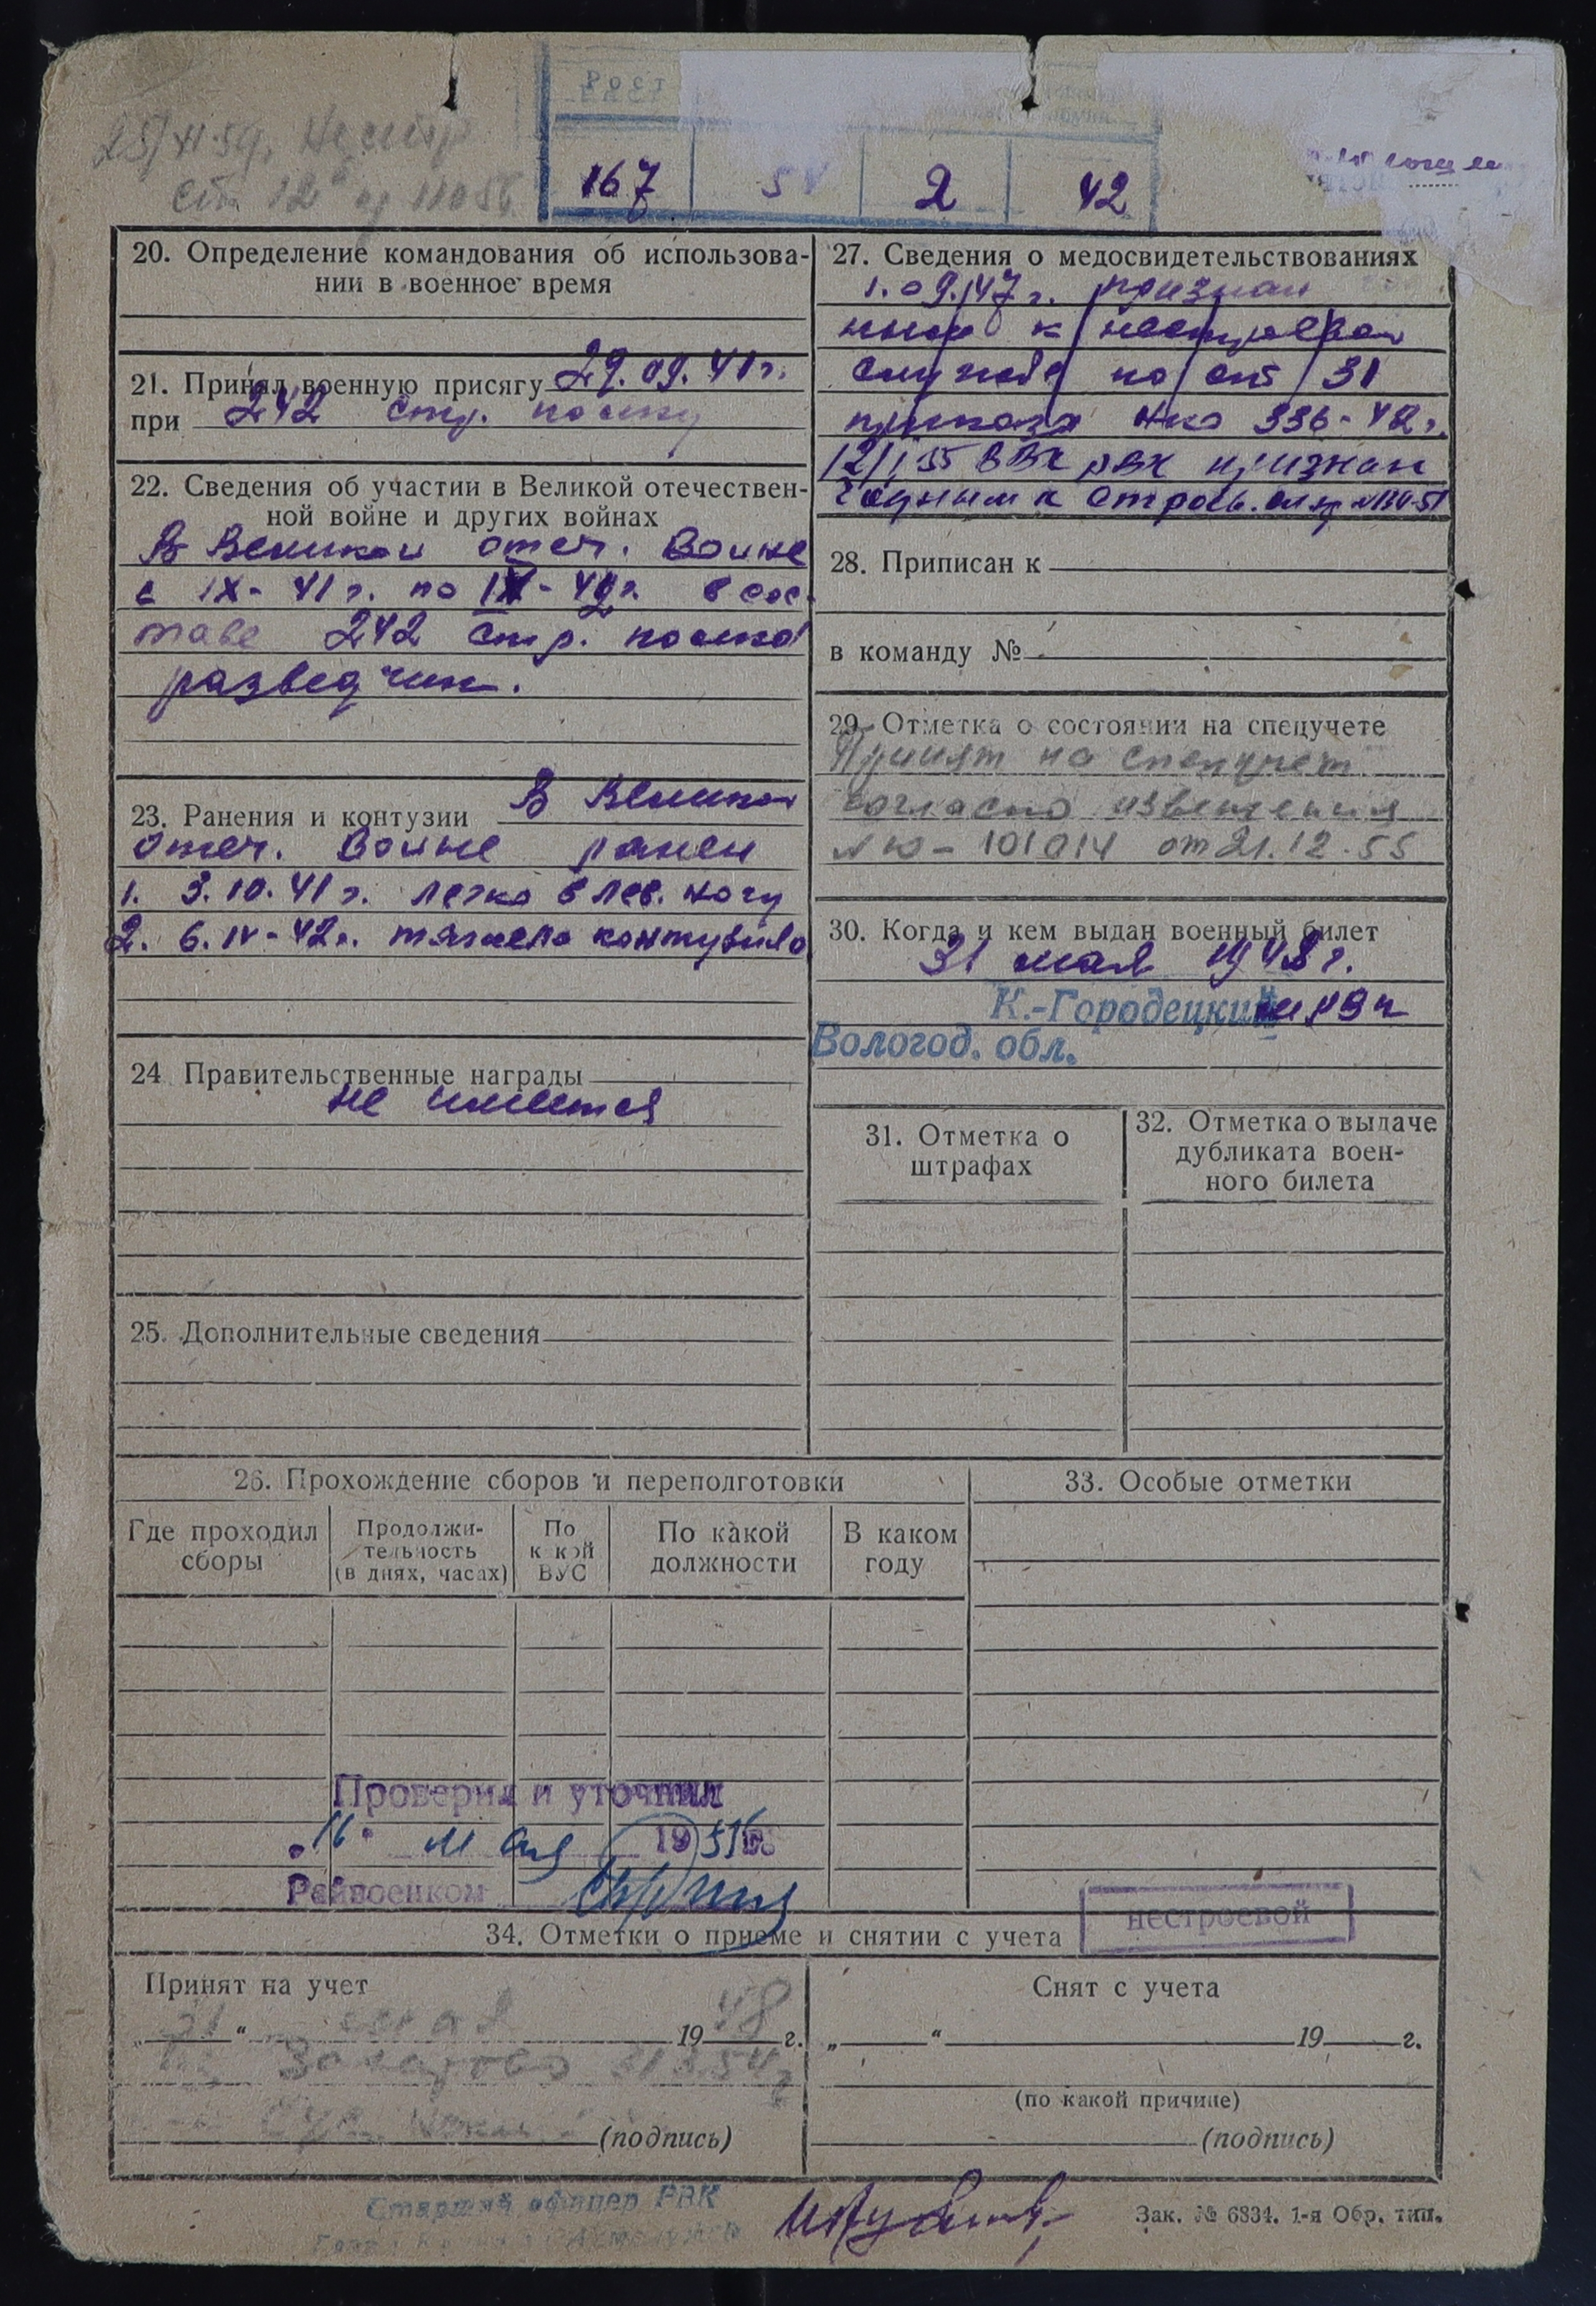 Рост
167 2 42
20. Определение командования об использова-
нии в военное время
21. Принял военную присягу 29.09.41 г.
при 242 стр. полку
22. Сведения об участии в Великой отечествен-
ной войне и других войнах
В Великой отеч. войне
с IX-41 г. по IV-42 г. в сос-
таве 242 стр. полка
разведчик.
23. Ранения и контузии В Великой
отеч. войне ранен
1. 3.10.41 г. легко в лев. ногу
2. 6.IV-42 г. тяжело
24 Правительственные награды
не имеется
25. Дополнительные сведения
26. Прохождение сборов и переподготовки
Где проходил
сборы
Продолжи-
тельность
(в днях, часах)
По
какой
ВУС
По какой
должности
В каком
году
Проверил и уточнил
„16“ мая 1956
Райвоенком
27. Сведения о медосвидетельствованиях
1.09.47 г. признан
к нестроевой
службе по ст 31
приказа НКО 336-42 г.
12/I 55 ВВК РВК признан
годным к строев.
28. Приписан к
в команду №
29. Отметка о состоянии на спецучете
Принят на спецучет
согласно извещения
№ 10-101014 от 21.12.55
30. Когда и кем выдан военный билет
31 мая 1948 г.
К.-Городецкий РВК
Вологод. обл.
31. Отметка о
штрафах
32. Отметка о выдаче
дубликата воен-
ного билета
33. Особые отметки
нестроевой
34. Отметки о приеме и снятии с учета
Принят на учет
„31“ мая 1948 г.
(подпись)
Снят с учета
„ “ 19 г.
(по какой причине)
(подпись)
Старший офицер РВК
Зак. № 6834. 1-я Обр. тип.